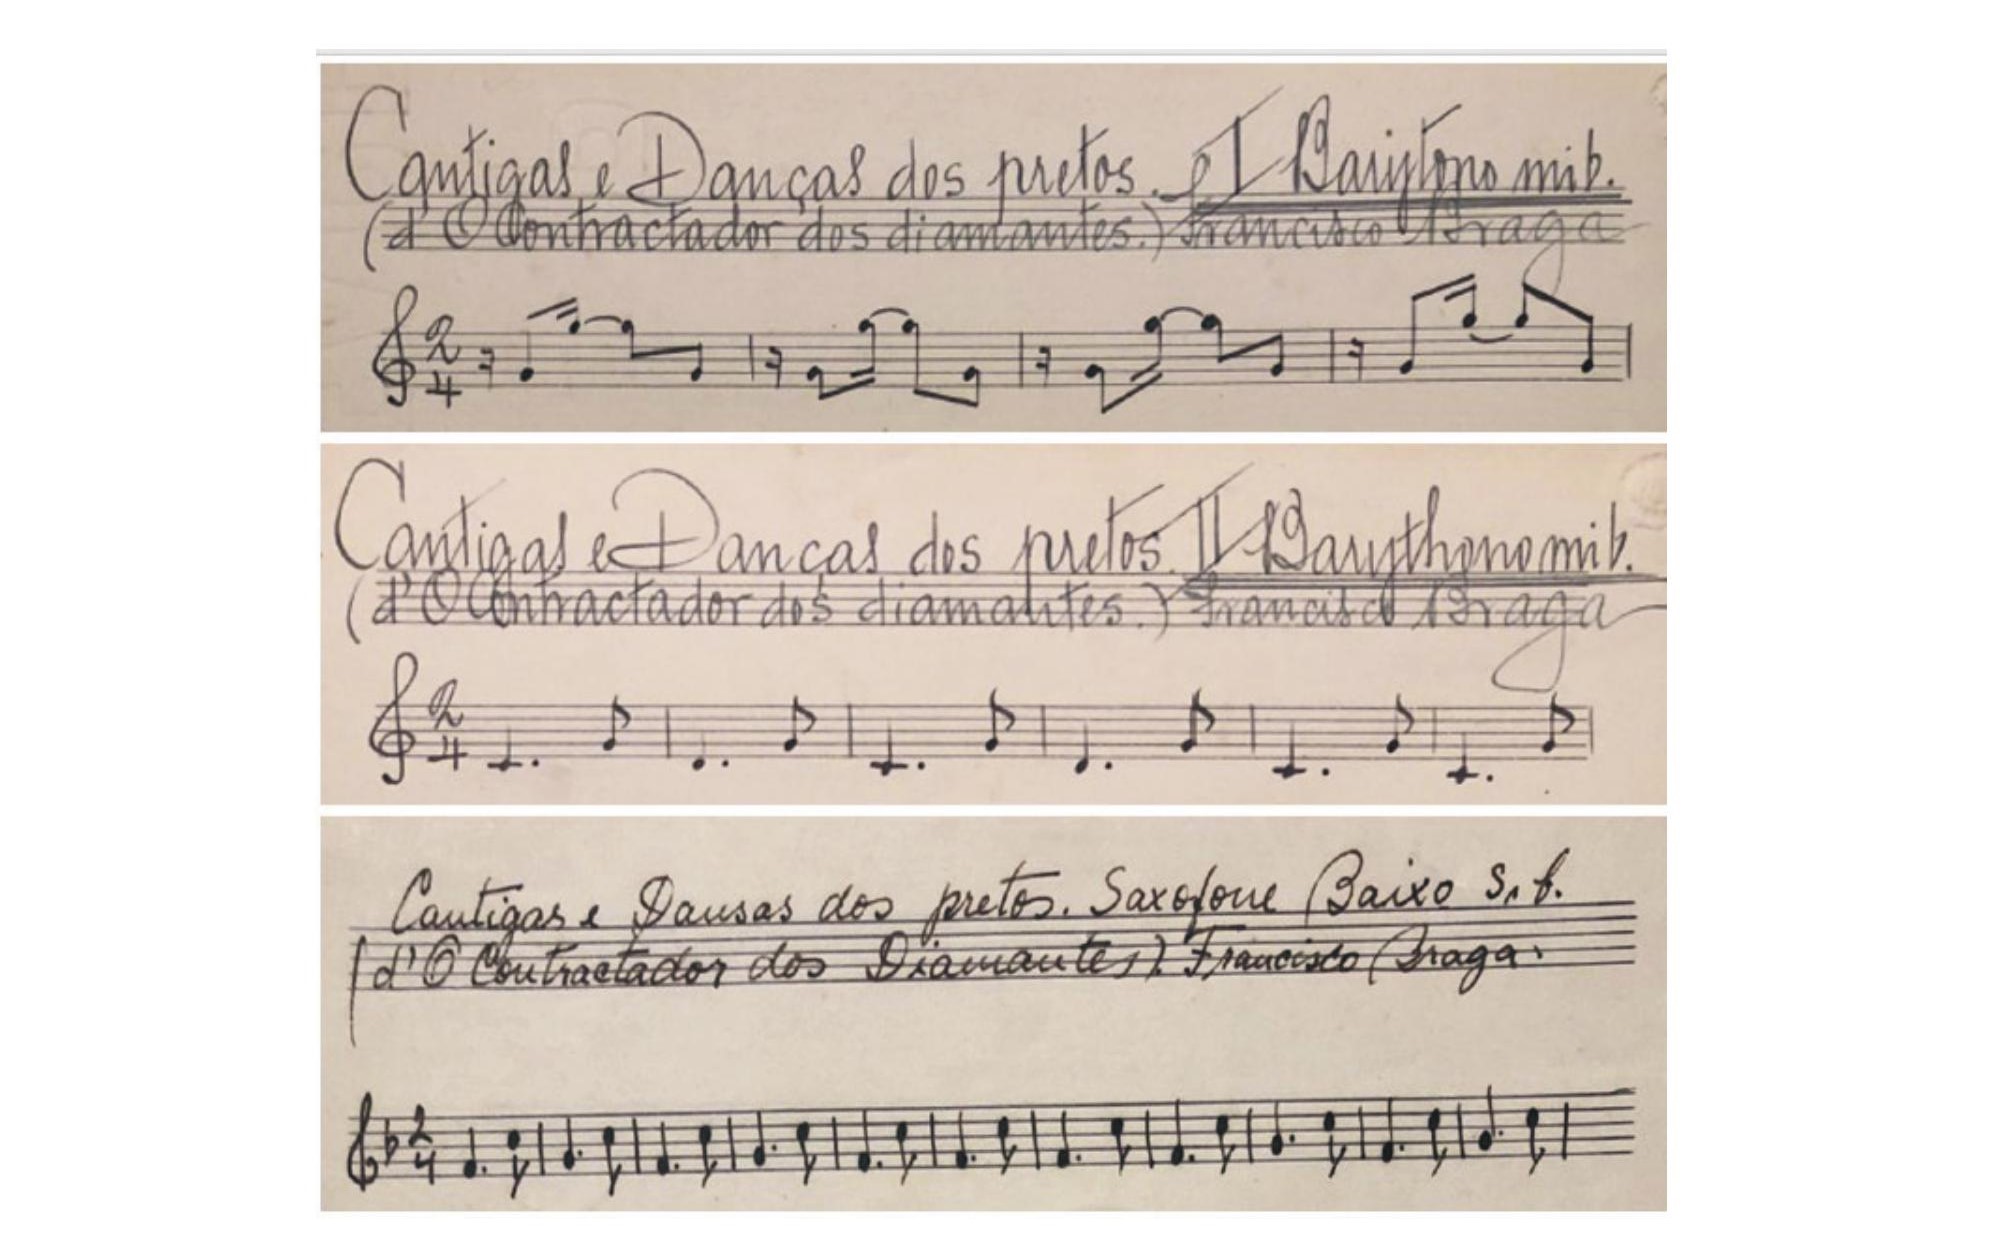 Cantigas e Danças dos pretos. I Barytono mib.
(d'O Contractador dos diamantes.) Francisco Braga
2
4
Cantigas e Danças dos pretos. II Barythono mib.
(d'O Contractador dos diamantes.) Francisco Braga
2
4
Cantigas e Dansas dos pretos. Saxofone Baixo Sib.
(d'O Contractador dos Diamantes). Francisco Braga.
2
4